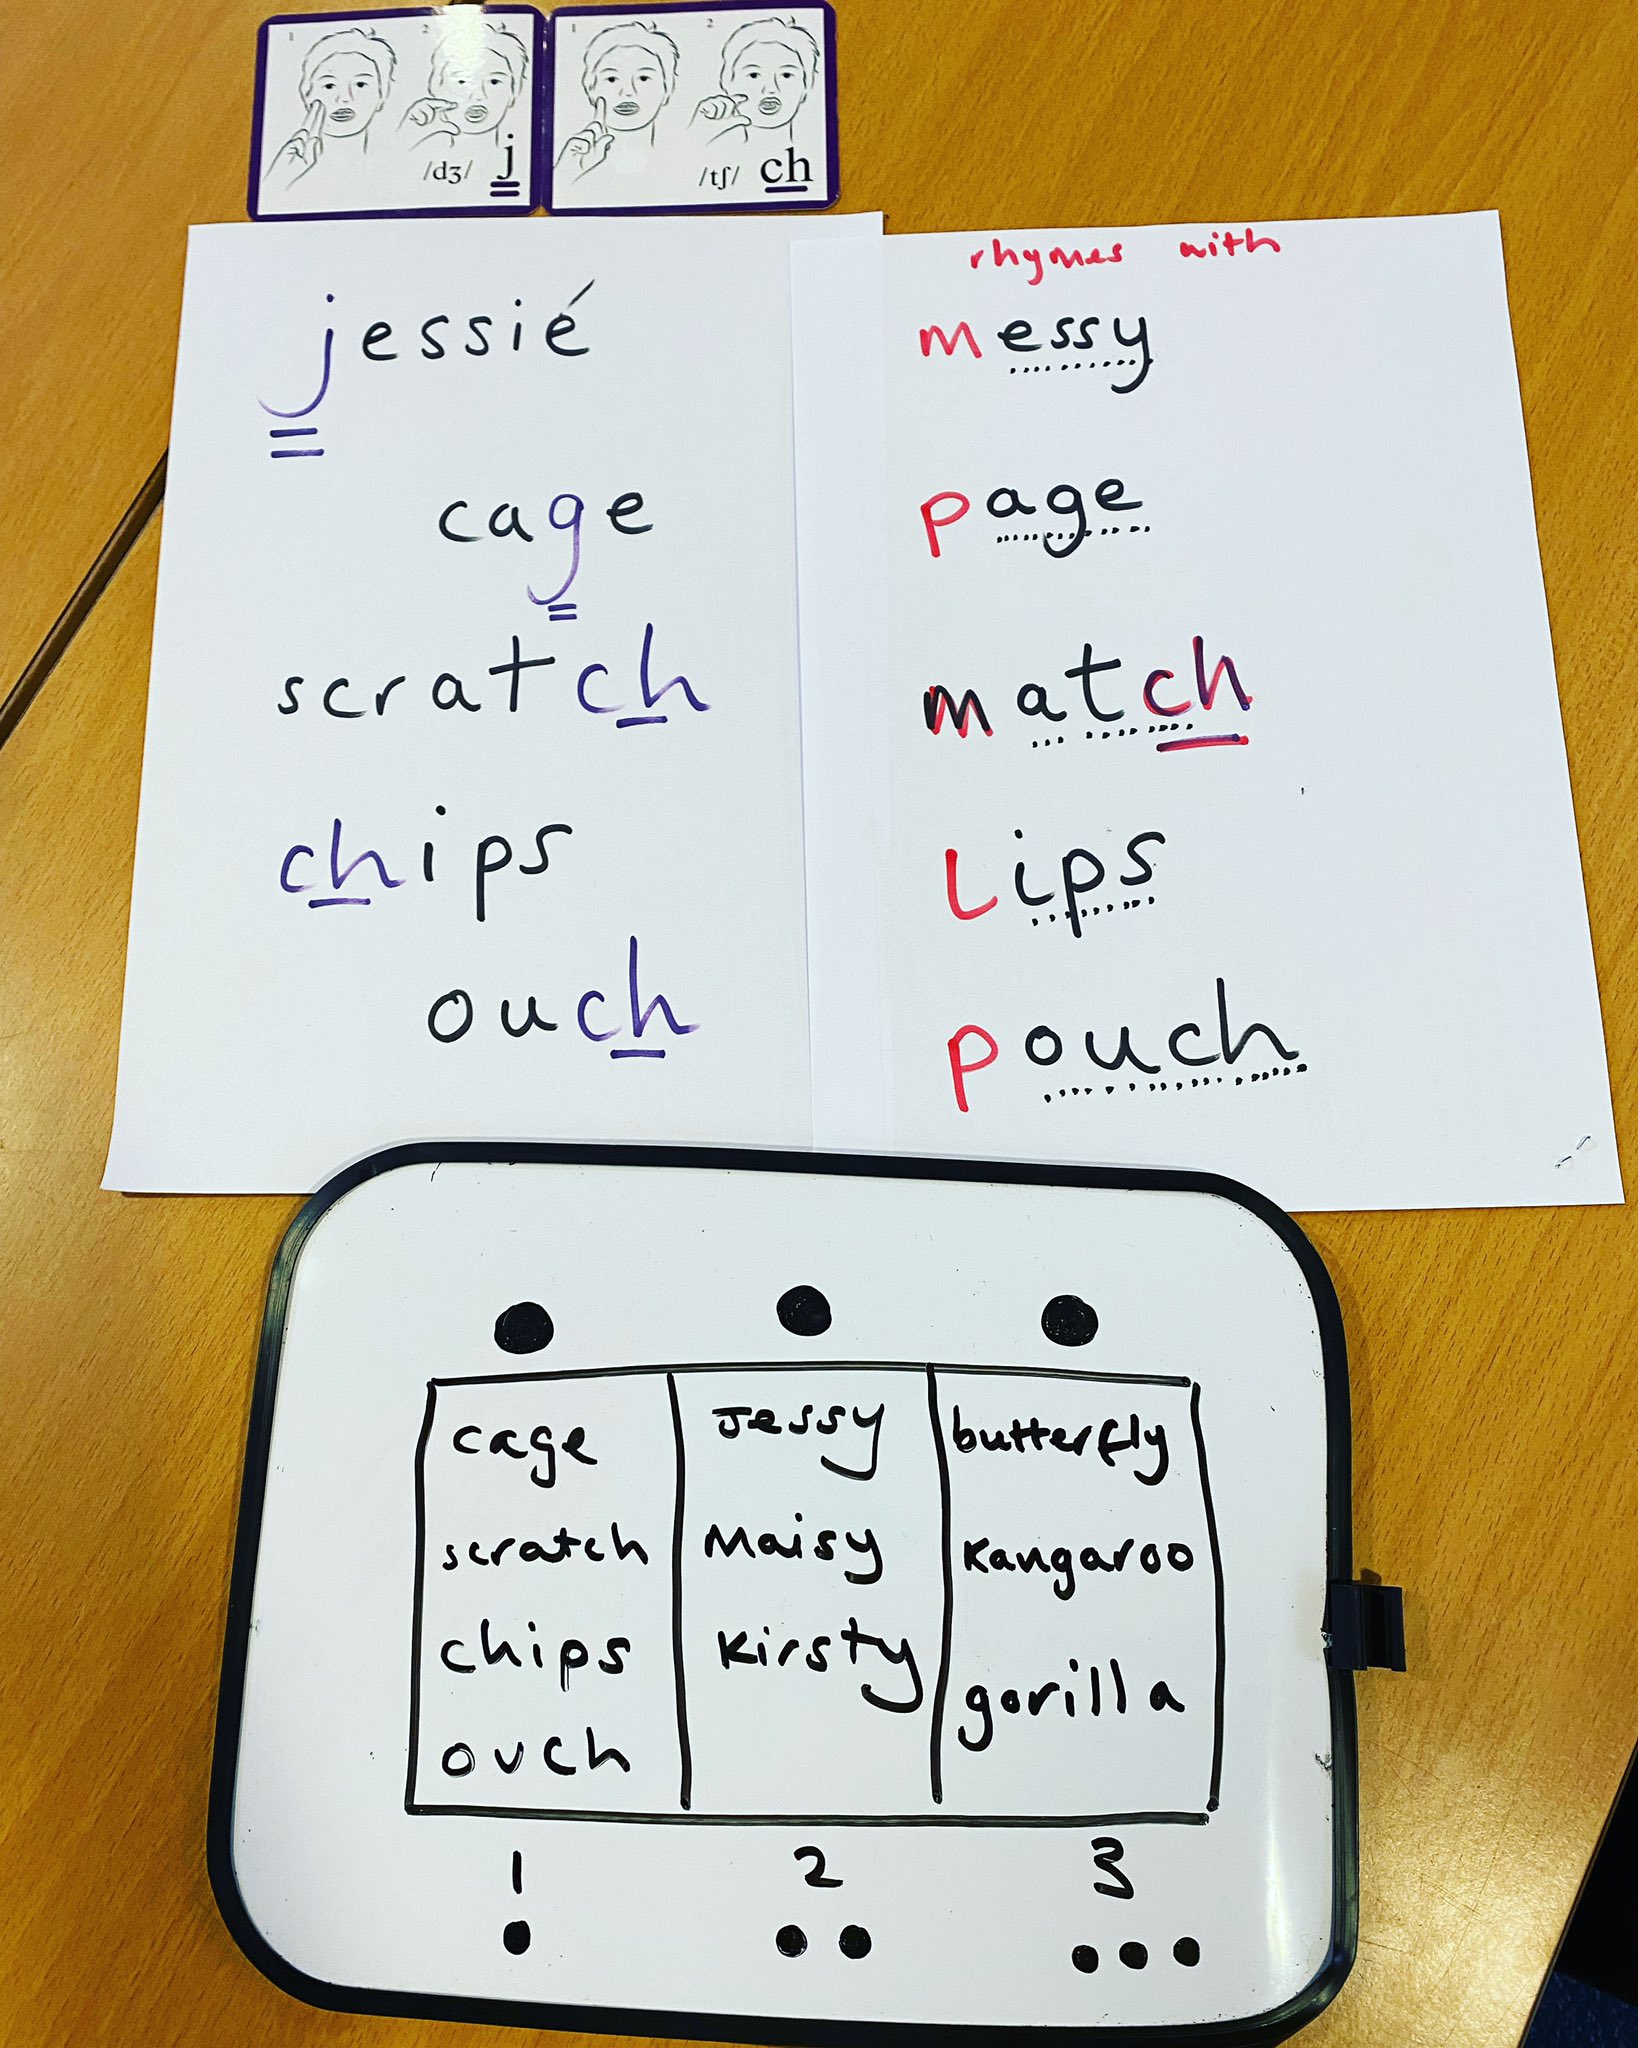 1 2
/dʒ/ j
1 2
/tʃ/ ch
jessié
cage
scratch
chips
ouch
rhymes with
messy
page
match
Lips
pouch
cage
scratch
chips
ouch
Jessy
Maisy
Kirsty
butterfly
Kangaroo
gorilla
1 2 3